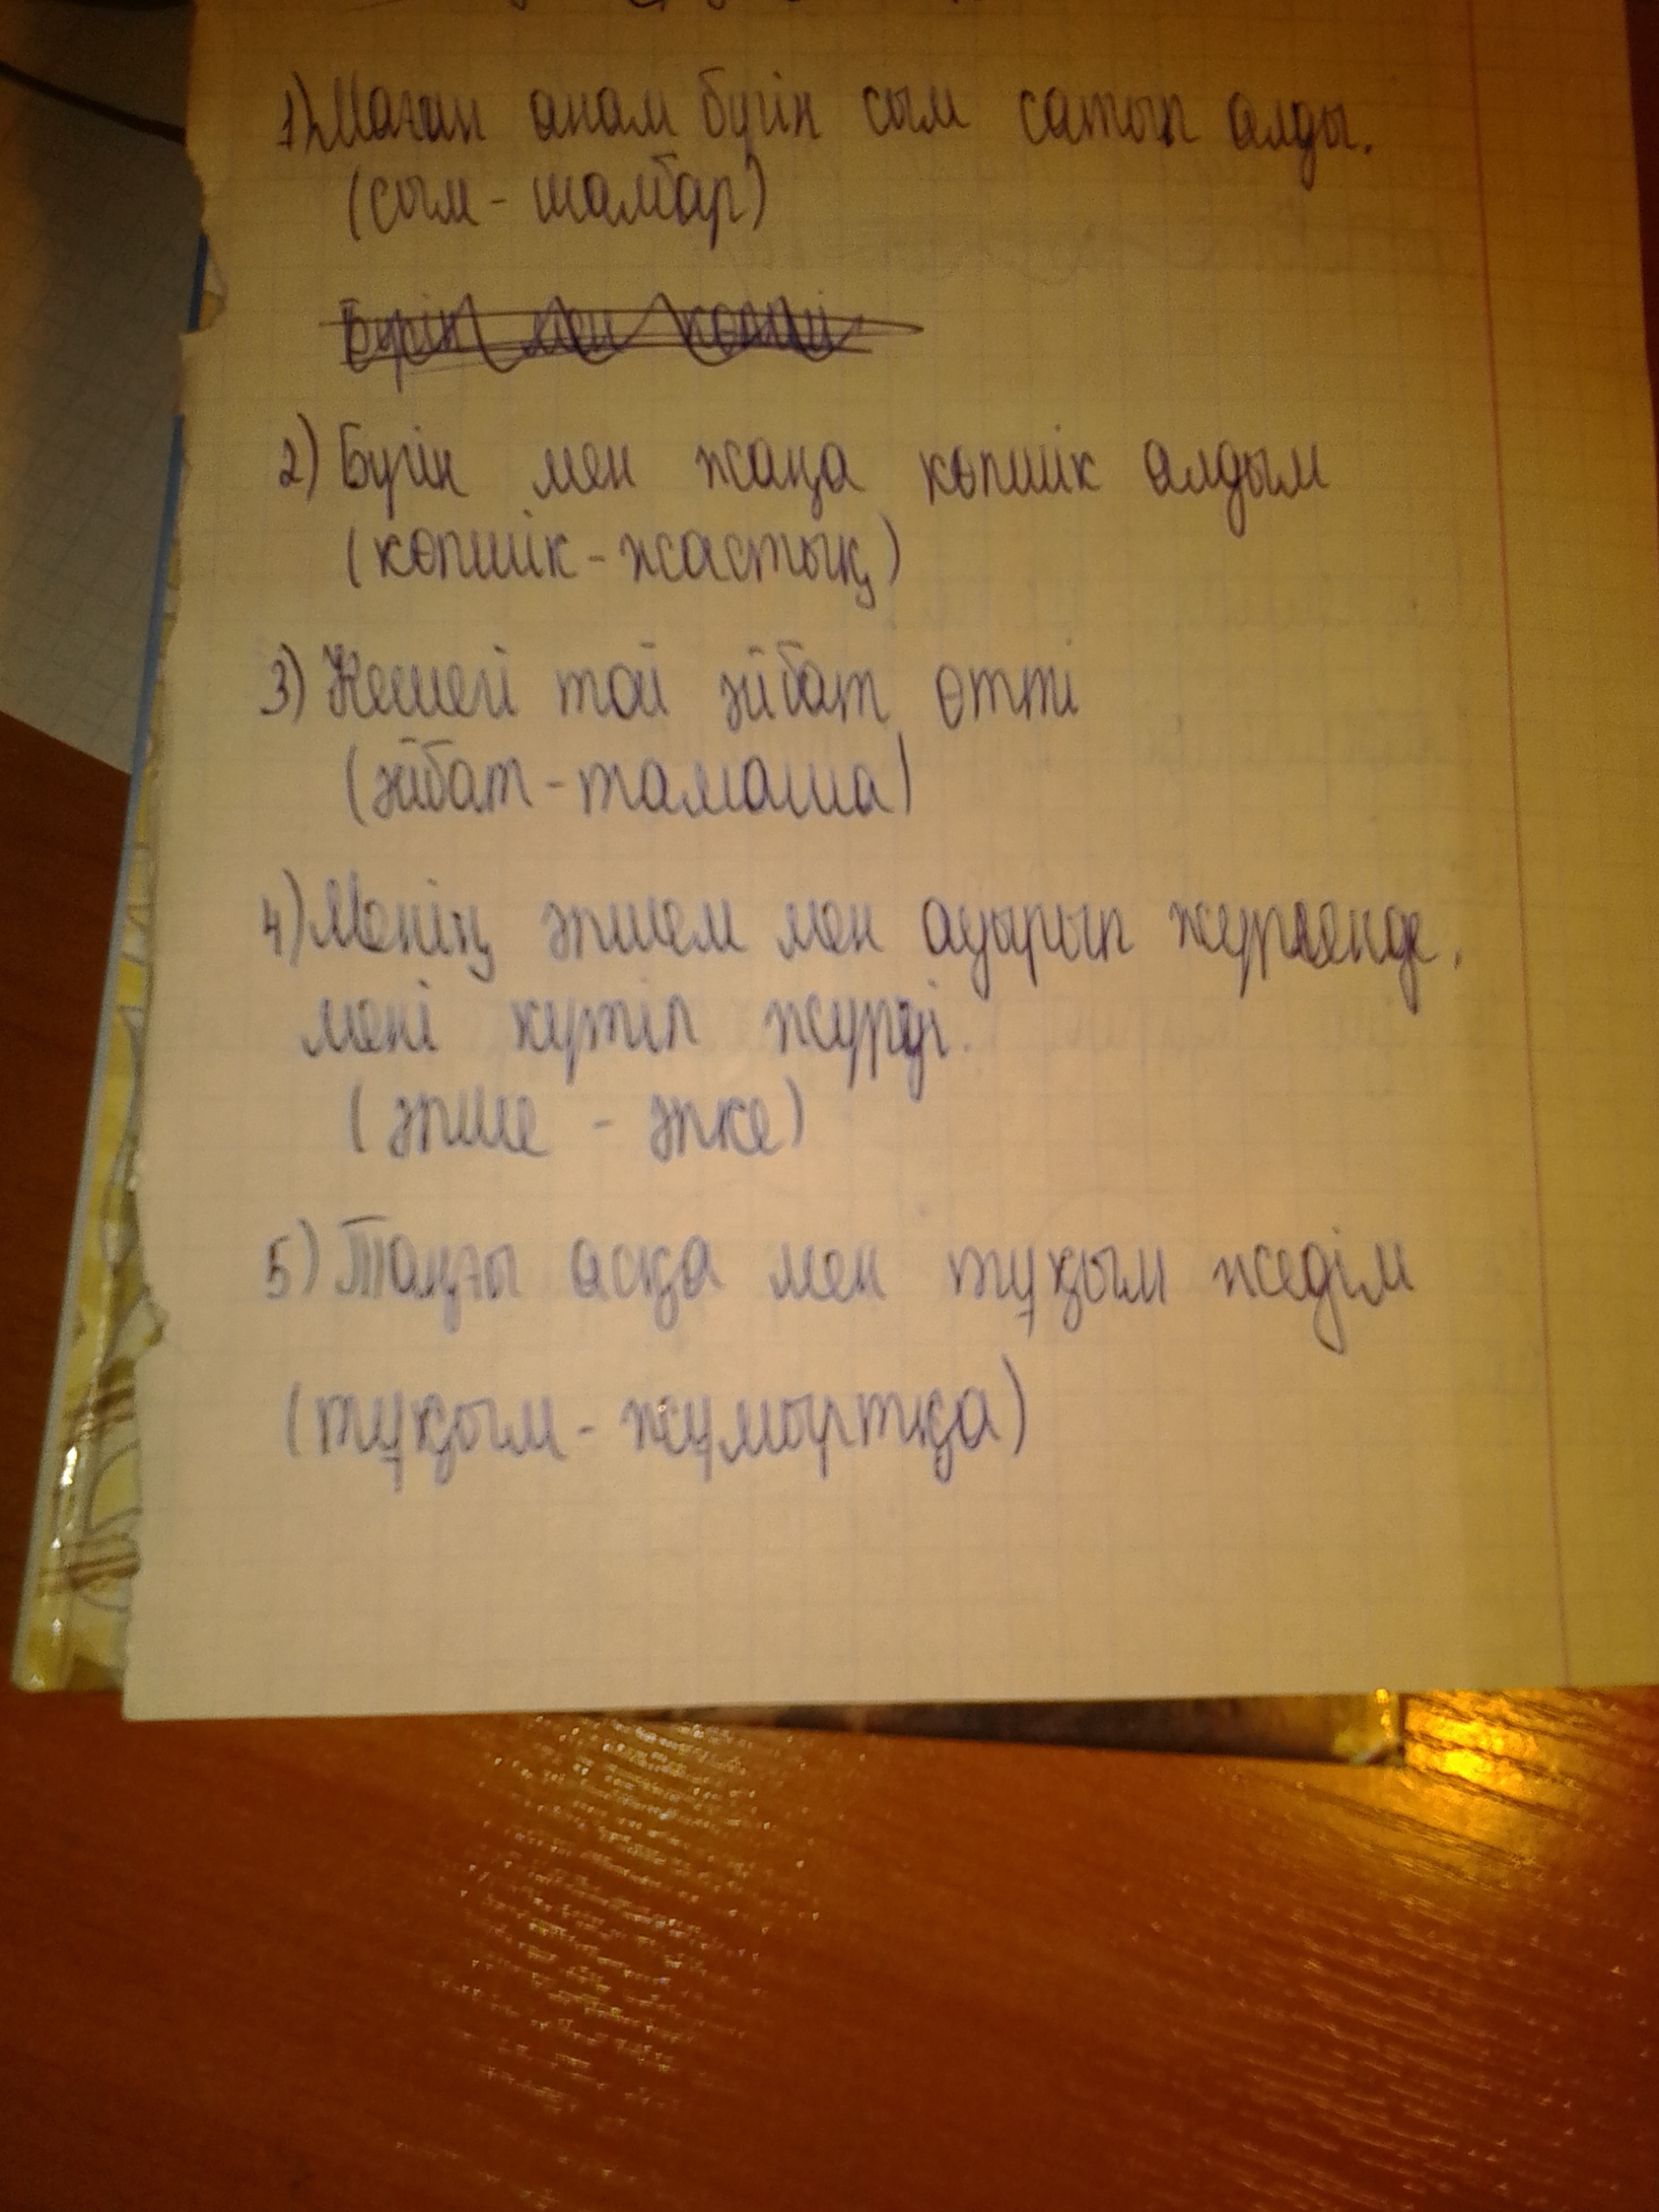 1) Маған анам бүгін сым сатып алды.
(сым - шалбар)
Бүгін мен көпші
2) Бүгін мен жаңа көпшік алдым
(көпшік - жастық)
3) Кешегі той әйбат өтті
(әйбат - тамаша)
4) Менің әпшем мен ауырып жүргенде,
мені күтіп жүрді.
(әпше - әпке)
5) Таңғы асқа мен тұқым жедім
(тұқым - жұмыртқа)